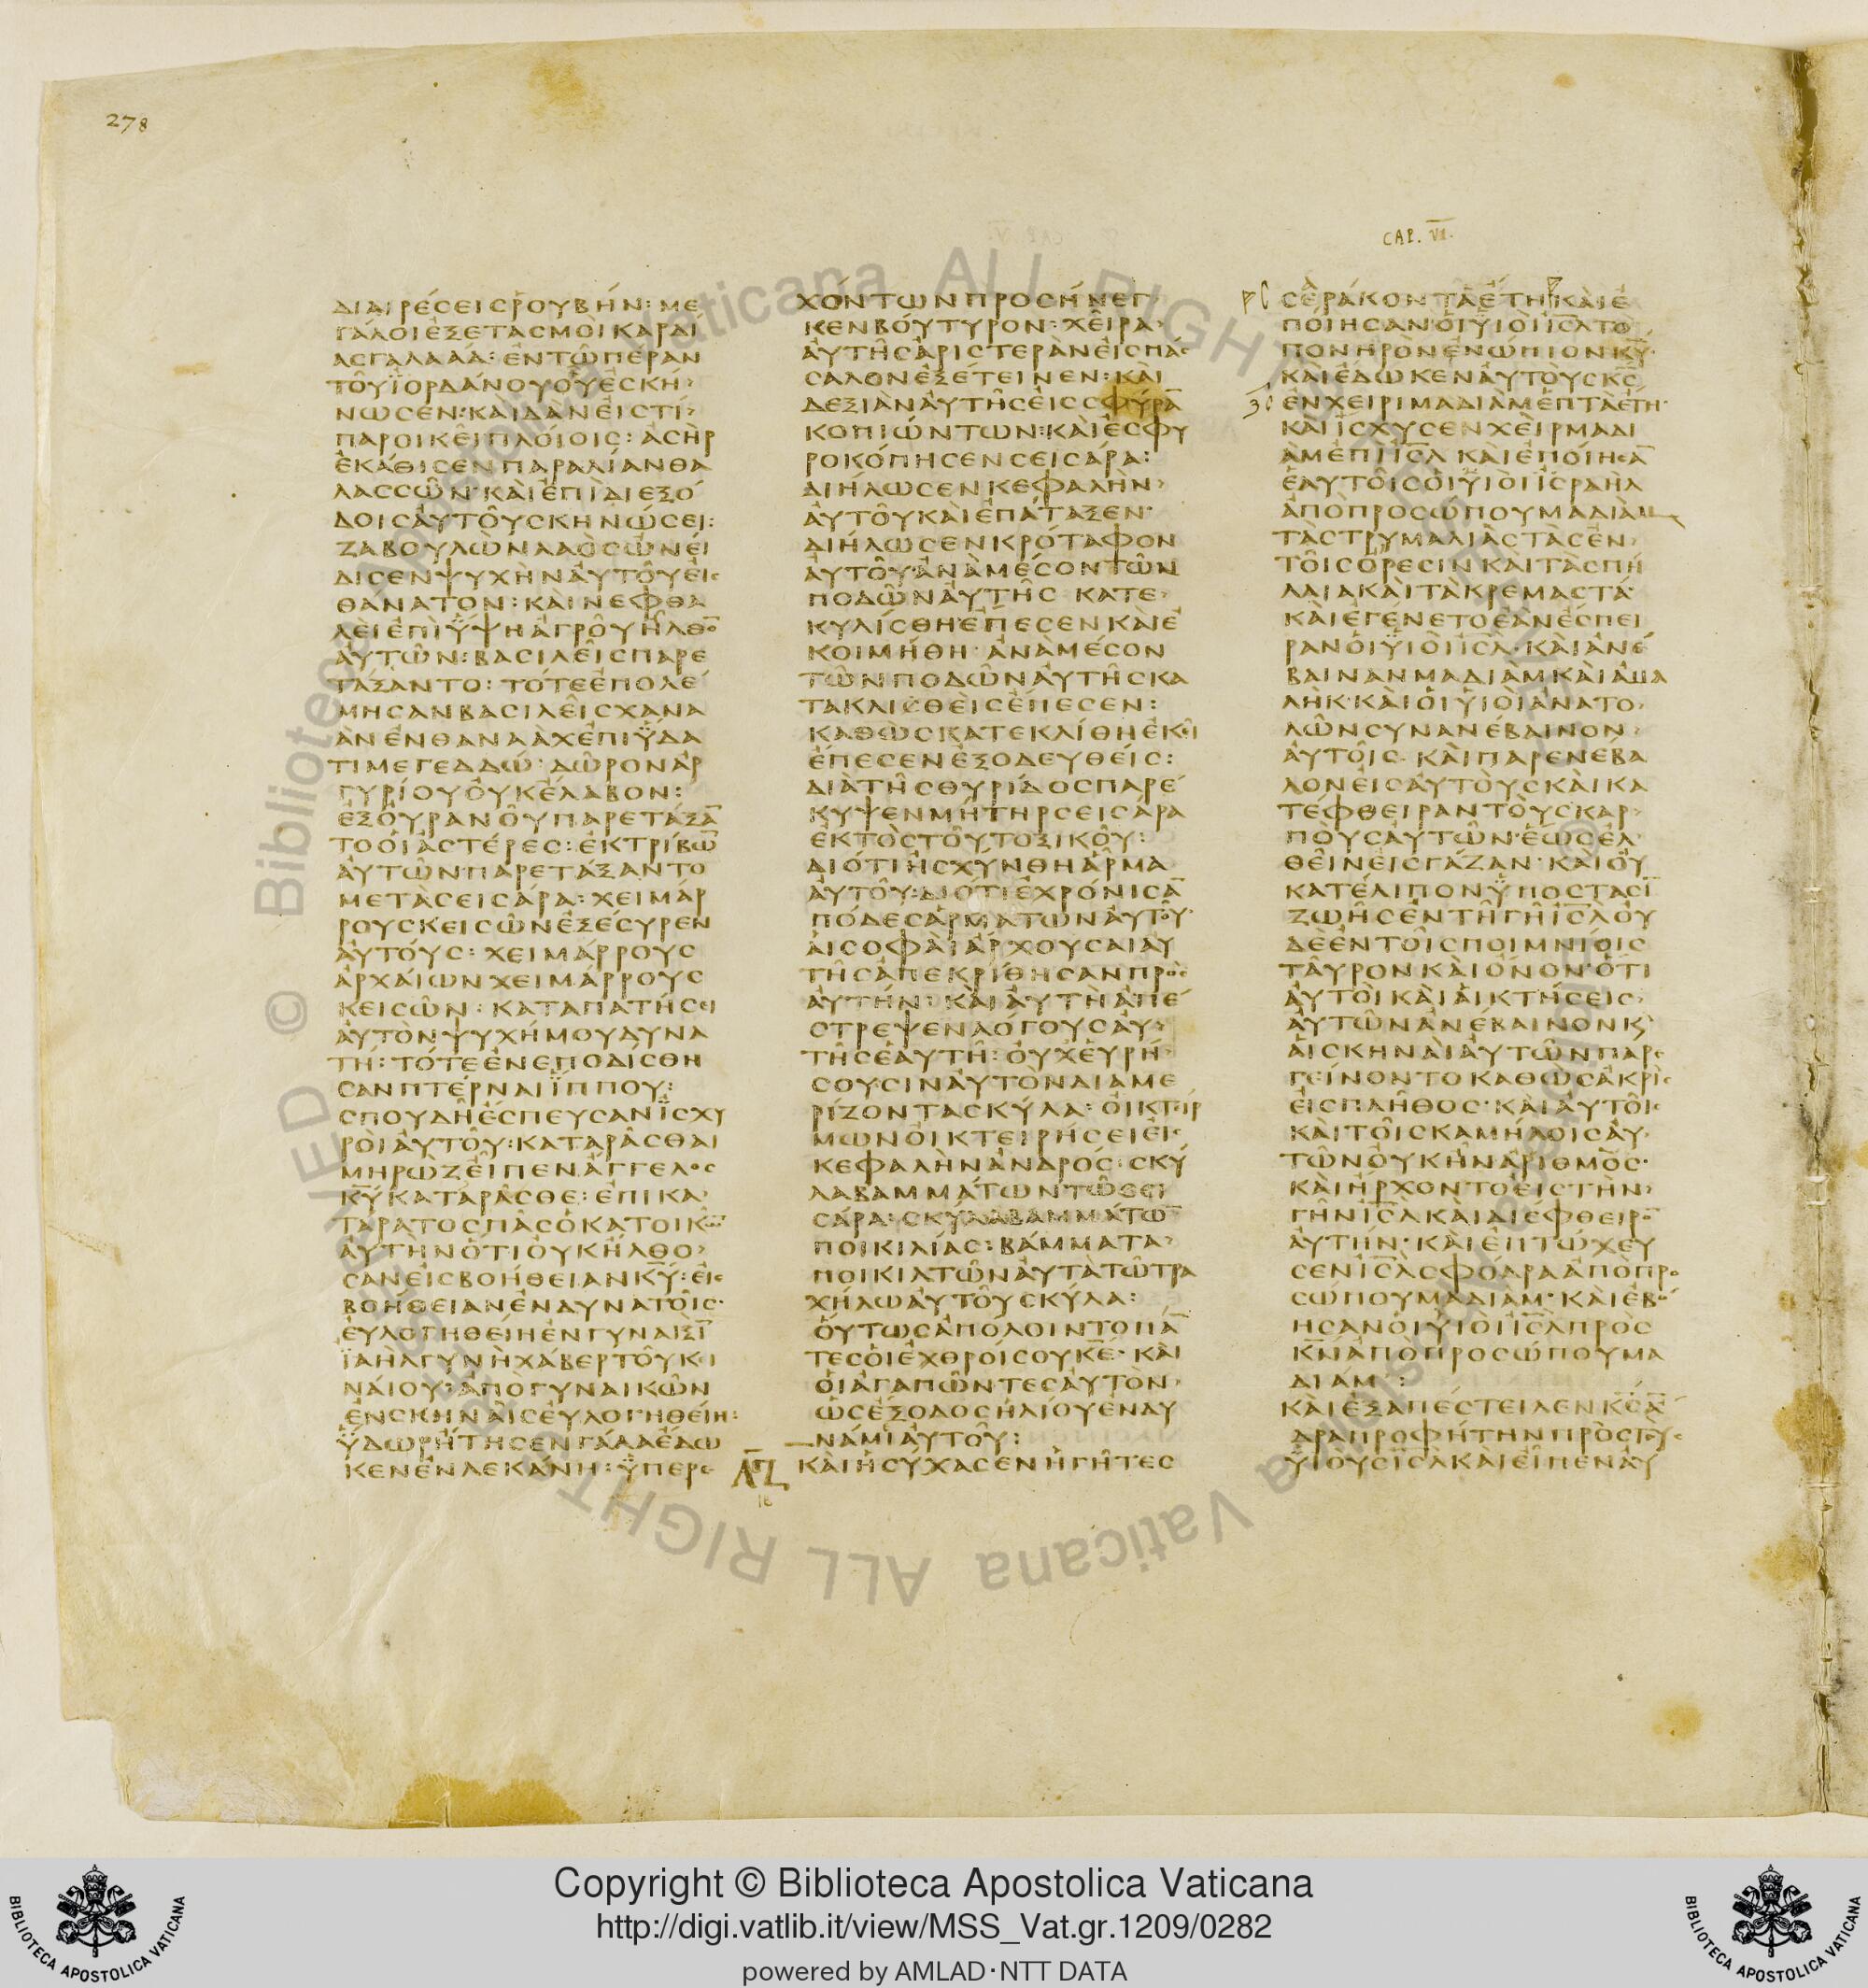 278
CAP. VI.
ΔΙΑΙΡΈCΕΙCῬΟΥΒΉΝ: ΜΕ
ΓΆΛΟΙἘΞΕΤΑCΜΟῚΚΑΡΔΊ
ΑCΓΑΛΑΑΔ: ἘΝΤΩ͂ΠΈΡΑΝ
ΤΟΥ͂ἸΟΡΔΆΝΟΥΟΥ͂ἘCΚΉ
ΝΩCΕΝ· ΚΑῚΔᾺΝΕἸCΤΊ
ΠΑΡΟΙΚΕΙ͂ΠΛΌΙΟΙC: ἈCῊΡ
ἘΚΆΘΙCΕΝΠΑΡΑΛΊΑΝΘΑ
ΛΑCCΩ͂Ν· ΚΑῚἘΠῚΔΙΕΞΌ
ΔΟΙCΑΥ̓ΤΟΥ͂CΚΗΝΏCΕΙ:
ΖΑΒΟΥΛῺΝΛΑῸCὨΝΕΊ
ΔΙCΕΝΨΥΧῊΝΑΥ̓ΤΟΥ͂ΕἸC
ΘΆΝΑΤΟΝ: ΚΑῚΝΕΦΘΑ
ΛΕῚἘΠῚΫ́ΨΗἈΓΡΟΥ͂ΗΛΘΟ̅
ΑΥ̓ΤΩ͂Ν: ΒΑCΙΛΕΙ͂CΠΑΡΕ
ΤΆΞΑΝΤΟ: ΤΌΤΕἘΠΟΛΈ
ΜΗCΑΝΒΑCΙΛΕΙ͂CΧΑΝΑ
ᾺΝἘΝΘΑΝΑᾺΧἘΠῚΫ́ΔΑ
ΤΙΜΕΓΕΔΔΏ· ΔΩ͂ΡΟΝἈΡ
ΓΥΡΊΟΥΟΥ̓ΚἜΛΑΒΟΝ:
ἘΞΟΥ̓ΡΑΝΟΥ͂ΠΑΡΕΤΆΞΑ̅
ΤΟΟἹἈCΤΈΡΕC: ἘΚΤΡΊΒΩ̅
ΑΥ̓ΤΩ͂Ν· ΠΑΡΕΤΆΞΑΝΤΟ
ΜΕΤᾺCΕΙCΆΡΑ: ΧΕΙΜΆΡ
ΡΟΥCΚΕΙCΩ͂ΝἘΞΈCΥΡΕΝ
ΑΥ̓ΤΟΎC: ΧΕΙΜΆΡΡΟΥC
ἈΡΧΑΊΩΝΧΕΙΜΆΡΡΟΥC
ΚΕΙCΩ͂Ν: ΚΑΤΑΠΑΤΉCΕΙ
ΑΥ̓ΤῸΝΨΥΧΉΜΟΥΔΥΝΑ
ΤΉ: ΤΌΤΕἘΝΕΠΟΔΊCΘΗ
CΑΝΠΤΈΡΝΑΙΪ́ΠΠΟΥ:
CΠΟΥΔΗ͂ἜCΠΕΥCΑΝἸCΧΥ
ΡΟῚΑΥ̓ΤΟΥ͂: ΚΑΤΑΡΑ͂CΘΑΙ
ΜΗΡῺΖΕἸΠΕΝἌΓΓΕΛΟC
Κ̅Υ̅ΚΑΤΑΡΑ͂CΘΕ: ἘΠΙΚΑ
ΤΆΡΑΤΟCΠΑ͂CὉΚΑΤΟΙΚΩ̅
ΑΥ̓ΤῊΝὍΤΙΟΥ̓ΚΉΛΘΟ
CΑΝΕἸCΒΟΉΘΕΙΑΝΚ̅Υ̅: ΕἸC
ΒΟΉΘΕΙΑΝἘΝΔΥΝΑΤΟΙ͂C·
ΕΥ̓ΛΟΓΗΘΕΊΗἘΝΓΥΝΑΙΞῚ̅
ΪΑῊΛΓΥΝῊΧΆΒΕΡΤΟΥ͂ΚΕΙ
ΝΑΊΟΥ· ἈΠῸΓΥΝΑΙΚΩ͂Ν
ἘΝCΚΗΝΑΙ͂CΕΥ̓ΛΟΓΗΘΕΊΗ:
Ϋ́ΔΩΡΉΤΗCΕΝΓΆΛΑἜΔΩ
ΚΕΝἘΝΛΕΚΆΝΗ: ΫΠΕΡΕ
ΧΌΝΤΩΝΠΡΟCΉΝΕΓ
ΚΕΝΒΟΎΤΥΡΟΝ: ΧΕΙ͂ΡΑ
ΑΥ̓ΤΗ͂CἈΡΙCΤΕΡᾺΝΕἸCΠΆC
CΑΛΟΝἘΞΈΤΕΙΝΕΝ: ΚΑῚ
ΔΕΞΙᾺΝΑΥ̓ΤΗ͂CΕἸCCΦΎΡΑ̅
ΚΟΠΙΏΝΤΩΝ: ΚΑῚἘCΦΥ
ΡΟΚΌΠΗCΕΝCΕΙCΆΡΑ:
ΔΙΉΛΩCΕΝΚΕΦΑΛῊΝ
ΑΥ̓ΤΟΥ͂ΚΑῚἘΠΆΤΑΞΕΝ·
ΔΙΉΛΩCΕΝΚΡΌΤΑΦΟΝ
ΑΥ̓ΤΟΥ͂· ἈΝᾺΜΈCΟΝΤΩ͂Ν
ΠΟΔΩ͂ΝΑΥ̓ΤΗ͂C ΚΑΤΕ
ΚΥΛΊCΘΗἜΠΕCΕΝΚΑῚἘ
ΚΟΙΜΉΘΗ· ἈΝᾺΜΈCΟΝ
ΤΩ͂ΝΠΟΔΩ͂ΝΑΥ̓ΤΗ͂CΚΑ
ΤΑΚΛΙCΘΕῚCἜΠΕCΕΝ:
ΚΑΘῺCΚΑΤΕΚΛΊΘΗἘΚΕΙ͂
ἜΠΕCΕΝἘΞΟΔΕΥΘΕΊC:
ΔΙᾺΤΗ͂CΘΥΡΊΔΟCΠΑΡΈ
ΚΥΨΕΝΜΉΤΗΡCΕΙCΆΡΑ
ἘΚΤῸCΤΟΥ͂ΤΟΞΙΚΟΥ͂:
ΔΙΌΤΙἨCΧΎΝΘΗἍΡΜΑ
ΑΥ̓ΤΟΥ͂: ΔΙΌΤΙἘΧΡΌΝΙCΑ̅
ΠΌΔΕCἉΡΜΆΤΩΝΑΥ̓ΤΟΥ͂·
ΑἹCΟΦΑῚἌΡΧΟΥCΑΙΑΥ̓
ΤΗ͂CἈΠΕΚΡΊΘΗCΑΝΠΡῸC
ΑΥ̓ΤΉΝ: ΚΑῚΑΥ̓ΤῊἈΠΈ
CΤΡΕΨΕΝΛΌΓΟΥCΑΥ̓
ΤΗ͂CἙΑΥΤΗ͂: ΟΥ̓ΧΕὙΡΉ
CΟΥCΙΝΑΥ̓ΤῸΝΔΙΑΜΕ
ΡΊΖΟΝΤΑCΚΥ͂ΛΑ: ΟἸΚΤΕΙΡ
ΜΩΝΟἸΚΤΕΙΡΉCΕΙΕἸC
ΚΕΦΑΛῊΝἈΝΔΡΌC: CΚΥ͂
ΛΑΒΑΜΜΆΤΩΝΤΩ͂CΕΙ
CΆΡΑ: CΚΥ͂ΛΑΒΑΜΜΆΤΩ̅
ΠΟΙΚΙΛΊΑC: ΒΆΜΜΑΤΑ
ΠΟΙΚΙΛΤΩ͂ΝΑΥ̓ΤᾺΤΩ͂ΤΡΑ
ΧΉΛΩΑΥ̓ΤΟΥ͂CΚΥ͂ΛΑ:
ΟὝΤΩCἈΠΌΛΟΙΝΤΟΠΆ̅
ΤΕCΟἹἘΧΘΡΟΊCΟΥΚ̅Ε̅· ΚΑῚ
ΟἹἈΓΑΠΩ͂ΝΤΕCΑΥ̓ΤῸΝ
ὩCἜΞΟΔΟCἩΛΊΟΥἘΝΔΥ
ΝΆΜΙΑΥ̓ΤΟΥ͂:
ΚΑῚἩCΎΧΑCΕΝἩΓΗ͂ΤΕC
CΕΡΆΚΟΝΤΑἜΤΗΚΑῚἘ
ΠΟΊΗCΑΝΟἹΫἹΟῚΙ̅C̅Λ̅ΤῸ
ΠΟΝΗΡῸΝἘΝΏΠΙΟΝΚ̅Υ̅·
ΚΑῚἜΔΩΚΕΝΑΥ̓ΤΟῪCΚ̅C̅
ἘΝΧΕΙΡΙΜΑΔΙᾺΜἙΠΤᾺἜΤΗ·
ΚΑῚἸCΧΥCΕΝΧΕῚΡΜΑΔΙ
ᾺΜἘΠῚΙ̅C̅Λ̅ΚΑῚἘΠΟΊΗCΑ̅
ἙΑΥΤΟΙ͂CΟἹΫἹΟῚἸCΡΑΗΛ
ἈΠῸΠΡΟCΏΠΟΥΜΑΔΙᾺΜ
ΤᾺCΤΡΥΜΑΛΙᾺCΤᾺCἘΝ
ΤΟΙ͂CὌΡΕCΙΝΚΑῚΤᾺCΠΉ
ΛΑΙΑΚΑῚΤᾺΚΡΕΜΑCΤᾺ·
ΚΑῚἘΓΈΝΕΤΟἘᾺΝἜCΠΕΙ
ΡΑΝΟἹΫἹΟῚΙ̅C̅Λ̅· ΚΑῚἈΝΈ
ΒΑΙΝΑΝΜΑΔΙᾺΜΚΑῚἈΜΑ
ΛῊΚ· ΚΑῚΟἹΫἹΟῚἈΝΑΤΟ
ΛΩ͂ΝCΥΝΑΝΈΒΑΙΝΟΝ
ΑΥ̓ΤΟΙ͂C· ΚΑῚΠΑΡΕΝΈΒΑ
ΛΟΝΕἸCΑΥ̓ΤΟῪCΚΑῚΚΑ
ΤΈΦΘΕΙΡΑΝΤΟῪCΚΑΡ
ΠΟῪCΑΥ̓ΤΩ͂Ν· ἝΩCἘΛ
ΘΕΙ͂ΝΕἸCΓΆΖΑΝ· ΚΑῚΟΥ̓
ΚΑΤΈΛΙΠΟΝΫΠΌCΤΑCΙ̅
ΖΩΗ͂CἘΝΤΗ͂ΓΗ͂Ι̅C̅Λ̅ΟΥ̓
ΔῈἘΝΤΟΙ͂CΠΟΙΜΝΊΟΙC
ΤΑΥ͂ΡΟΝΚΑῚὌΝΟΝ· ὍΤΙ
ΑΥ̓ΤΟῚΚΑῚΑἹΚΤΉCΕΙC
ΑΥ̓ΤΩ͂ΝἈΝΈΒΑΙΝΟΝΚ̀
ΑἹCΚΗΝΑῚΑΥ̓ΤΩ͂ΝΠΑΡΕ
ΓΕΊΝΟΝΤΟΚΑΘῺCἈΚΡῚC
ΕἸCΠΛΗ͂ΘΟC· ΚΑῚΑΥ̓ΤΟΙ͂C
ΚΑῚΤΟΙ͂CΚΑΜΉΛΟΙCΑΥ̓
ΤΩ͂ΝΟΥ̓ΚΗ͂ΝἈΡΙΘΜΌC·
ΚΑῚΉΡΧΟΝΤΟΕἸCΤῊΝ
ΓΗ͂ΝΙ̅C̅Λ̅ΚΑῚΔΙΈΦΘΕΙΡΟ̅
ΑΥ̓ΤΉΝ· ΚΑῚἘΠΤΏΧΕΥ
CΕΝΙ̅C̅Λ̅CΦΌΔΡΑἈΠῸΠΡΟ
CΏΠΟΥΜΑΔΙΑΜ· ΚΑῚἘΒΌ
ΗCΑΝΟἹΫἹΟῚΙ̅C̅Λ̅ΠΡῸC
Κ̅Ν̅ἈΠῸΠΡΟCΏΠΟΥΜΑ
ΔΙΑΜ:
ΚΑῚἘΞΑΠΈCΤΕΙΛΕΝΚ̅C̅Ἄ̅
ΔΡΑΠΡΟΦΉΤΗΝΠΡῸCΤΟΥC
ΫἹΟῪCΙ̅C̅Λ̅ΚΑῚΕἸΠΕΝΑΥ̓
Copyright © Biblioteca Apostolica Vaticana
http://digi.vatlib.it/view/MSS_Vat.gr.1209/0282
powered by AMLAD·NTT DATA
BIBLIOTECA APOSTOLICA VATICANA
BIBLIOTECA APOSTOLICA VATICANA